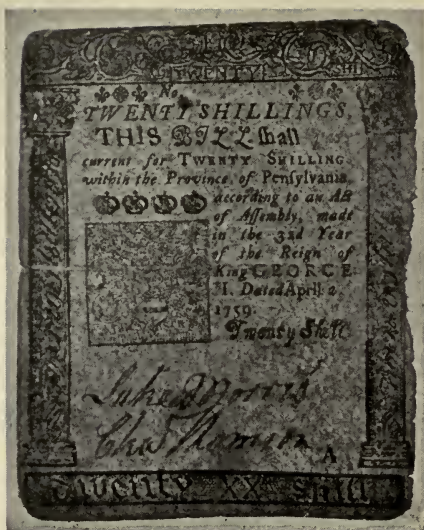 TWENTY SHI
No
TWENTY SHILLINGS.
THIS BILL ſhall
current for TWENTY SHILLING
within the Province of Penſylvania,
according to an Act
of Aſſembly, made
in the 32d Year
of the Reign of
King GEORGE
II. Dated April 2,
1759.
Twenty Shill
Luke Morris
Cha
A
Twenty XX Shill